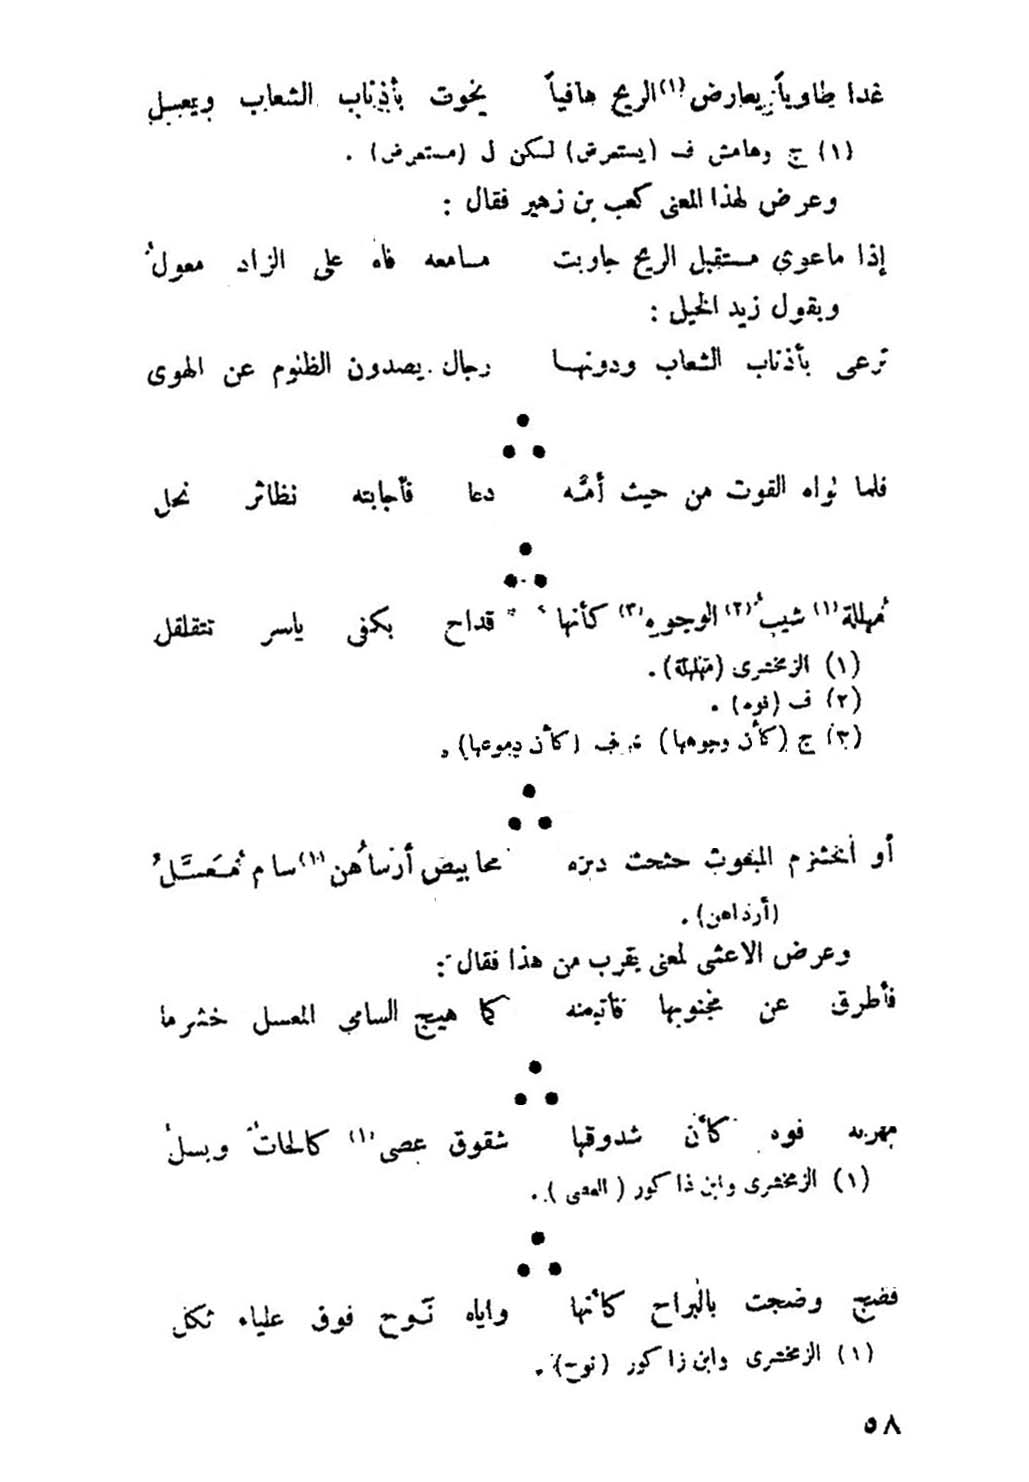 غدا طاوياً يعارض (١) الريح هافياً يخوت بأذناب الشعاب ويعسل
(١) ج وهامش ف (يستعرض) لكن ل (مستعرض) .
وعرض لهذا المعنى كعب بن زهير فقال :
إذا ما عوى مستقبل الريح جاوبت مسامعه فاه على الزاد معولُ
ويقول زيد الخيل :
ترعى بأذناب الشعاب ودونها رجال يصدون الظنوم عن الهوى
فلما لواه القوت من حيث أمَّه دعا فأجابته نظائر نحل
مُهللة (١) شيبُ (٢) الوجوه (٣) كأنها قداح بكفى ياسر تتقلقل
(١) الزمخشرى (مهلهلة) .
(٢) ف (فوه) .
(٣) ج (كأن وجوهها) ف (كأن دموعها) .
أو الخشرم المبعوث حثحث دبره محابيض أرساهُن (١) سام مُعَسَّلُ
(أرداهن) .
وعرض الاعشى لمعنى يقرب من هذا فقال :
فأطرق عن مجنوبها فاتبعنه كما هيج السامى المعسل خشرما
مهرته فوه كأن شدوقها شقوق عصى (١) كالحاتُ وبسلُ
(١) الزمخشرى وابن ذاكور (العصى) .
فضج وضجت بالبراح كأنها واياه نَوح فوق علياء ثكل
(١) الزمخشرى وابن زاكور (نوح) .
٥٨